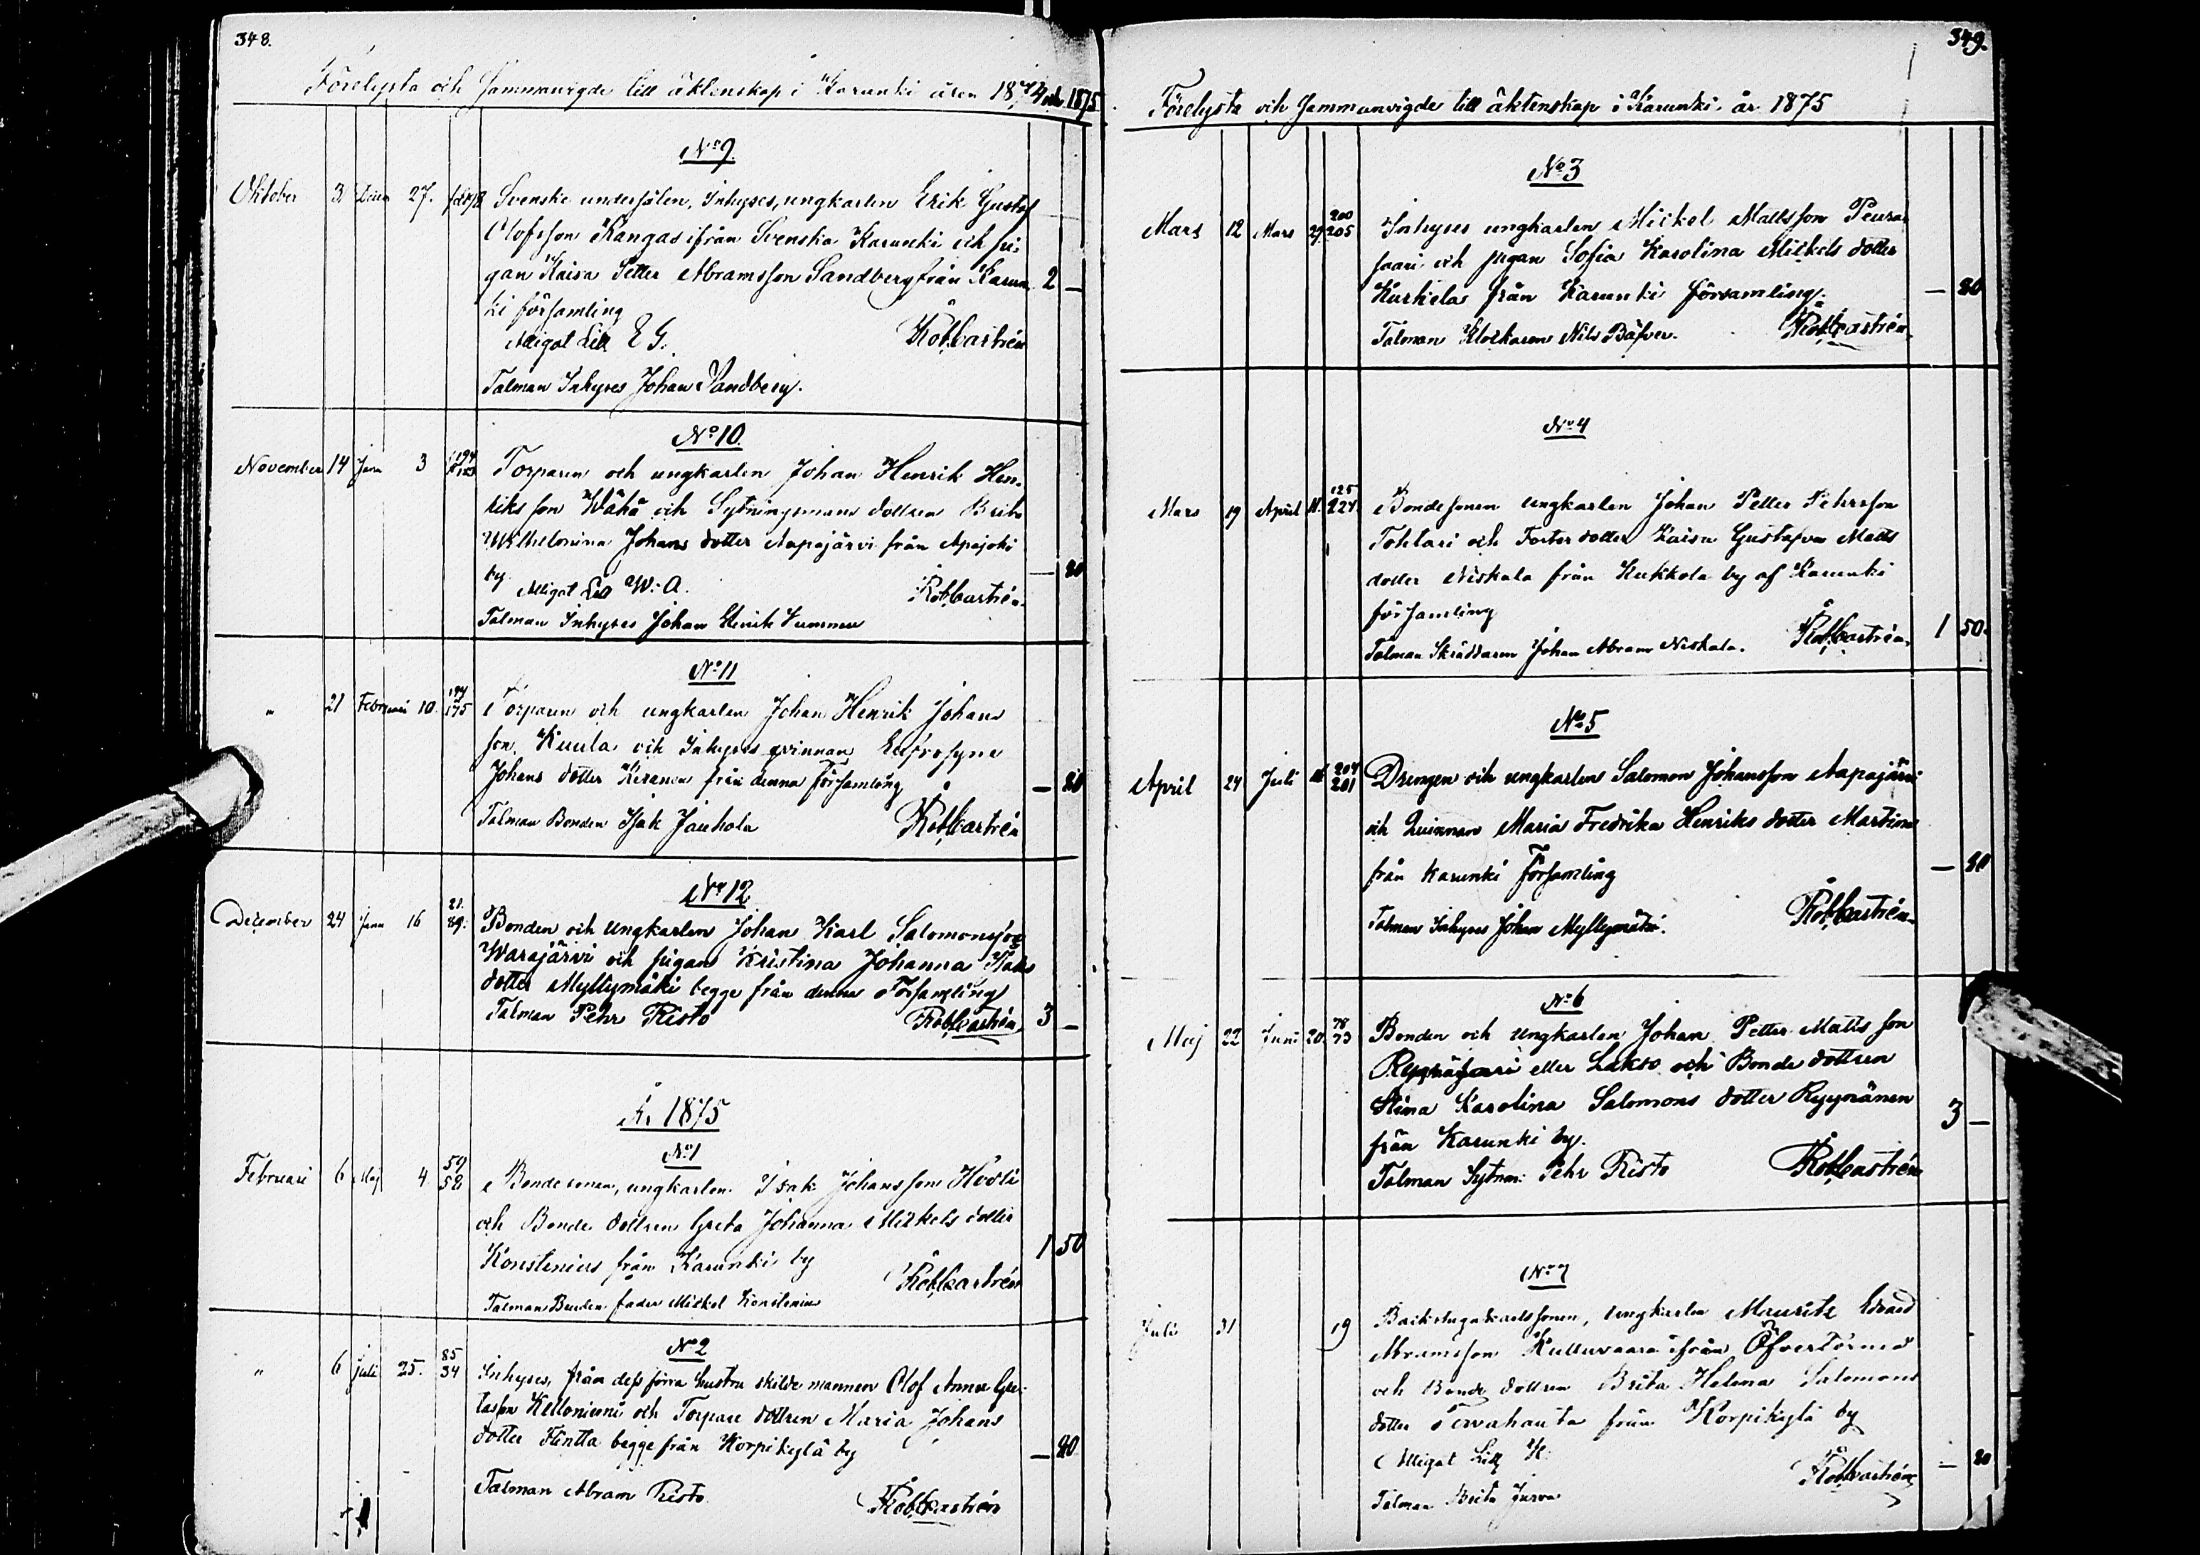 348.
Förelysta och Sammanvigde till äktenskap i Karunki åren 1874 och 1875
No 9.
Oktober 3 Decem 27. Svenske undersåten, Inhyses, ungkarlen Erik Gustaf
Olofsson Kangas ifrån Svenska Karunki och pi-
gan Kaisa Setter Abramsson Sandberg från Karun- 2 —
ki församling
Alligat Litt E G. Rob. Castrén
Talman Inhyses Johan Sandberg.
No 10.
November 14 Janu 3 194 Torparen och ungkarlen Johan Henrik Hen-
riksson Wähä och Sytningsmans dottren Brita
Wilhelmina Johans dotter Aapajärvi från Apajoki
by — 80
Alligat Litt W. A. Rob. Castrén
Talman Inhyses Johan Henrik
No 11
" 21 Februari 10. 194 175 Torparen och ungkarlen Johan Henrik Johans
son Kuula och Inhyses qvinnan Eufrosyne
Johans dotter Keranen från denna Församling — 80
Talman Bonden Isak Jauhola Rob. Castrén
No 12
December 24 Janu 16 21. 89. Bonden och Ungkarlen Johan Karl Salomonsson
Warajärvi och pigan Kristina Johanna Isaks
dotter Myllymäki begge från denna Församling
Talman Pehr Risto Rob. Castrén 3 —
År 1875
No 1
Februari 6 Maj 4 59 58 Bondesonen, ungkarlen Isak Johansson Hooli
och Bonde dottren Greta Johanna Mickels dotter
Konstenius från Karunki by 1 50
Rob. Castrén
Talman Brudens fader Mickel Konstenius
No 2
" 6 Juli 25. 85 34 Inhyses, från dess förra hustru skilde mannen Olof Anna Gre-
tasson Kelloniemi och Torpare dottren Maria Johans
dotter Flintta begge från Korpikylä by — 80
Talman Abram Risto Rob. Castrén
349.
Förelysta och Sammanvigde till äktenskap i Karunki år 1875
No 3
Mars 12 Mars 29 200 205 Inhyses ungkarlen Mickel Mattsson Peura-
saari och pigan Sofia Karolina Mickels dotter
Kurkela från Karunki församling. — 80
Talman Klockaren Nils Bäfver. Rob. Castrén
No 4
Mars 19 April 11. 125 224. Bondesonen ungkarlen Johan Petter Pehrsson
Tohlari och Foster dotter Kaisa Gustafva Matts
dotter Niskala från Kukkola by af Karunki
församling
Talman Skräddaren Johan Abram Niskala. Rob. Castrén 1 50.
No 5
April 24 Juli 204 201 Drengen och ungkarlen Salomon Johansson Aapajärvi
och Quinnan Maria Fredrika Henriks dotter Martima
från Karunki Församling — 80
Talman Inhyses Johan Myllymäki. Rob. Castrén
No 6
Maj 22 Juni 20. 78 73 Bonden och Ungkarlen Johan Petter Matts son
eller Lakso och Bonde dottren
Stina Karolina Salomons dotter Ryynänen
från Karunki by. 3 —
Talman Sytnm: Pehr Risto Rob. Castrén
No 7
Juli 31 19 Backstugukarlssonen, Ungkarlen Mauritz Edvard
Abramsson Kulluvaara ifrån Öfvertorneå
och Bonde dottren Brita Helena Salomons
dotter Tervahauta från Korpikylä by
Alligat Litt K. — 80
Talman Brita Jurva Rob. Castrén